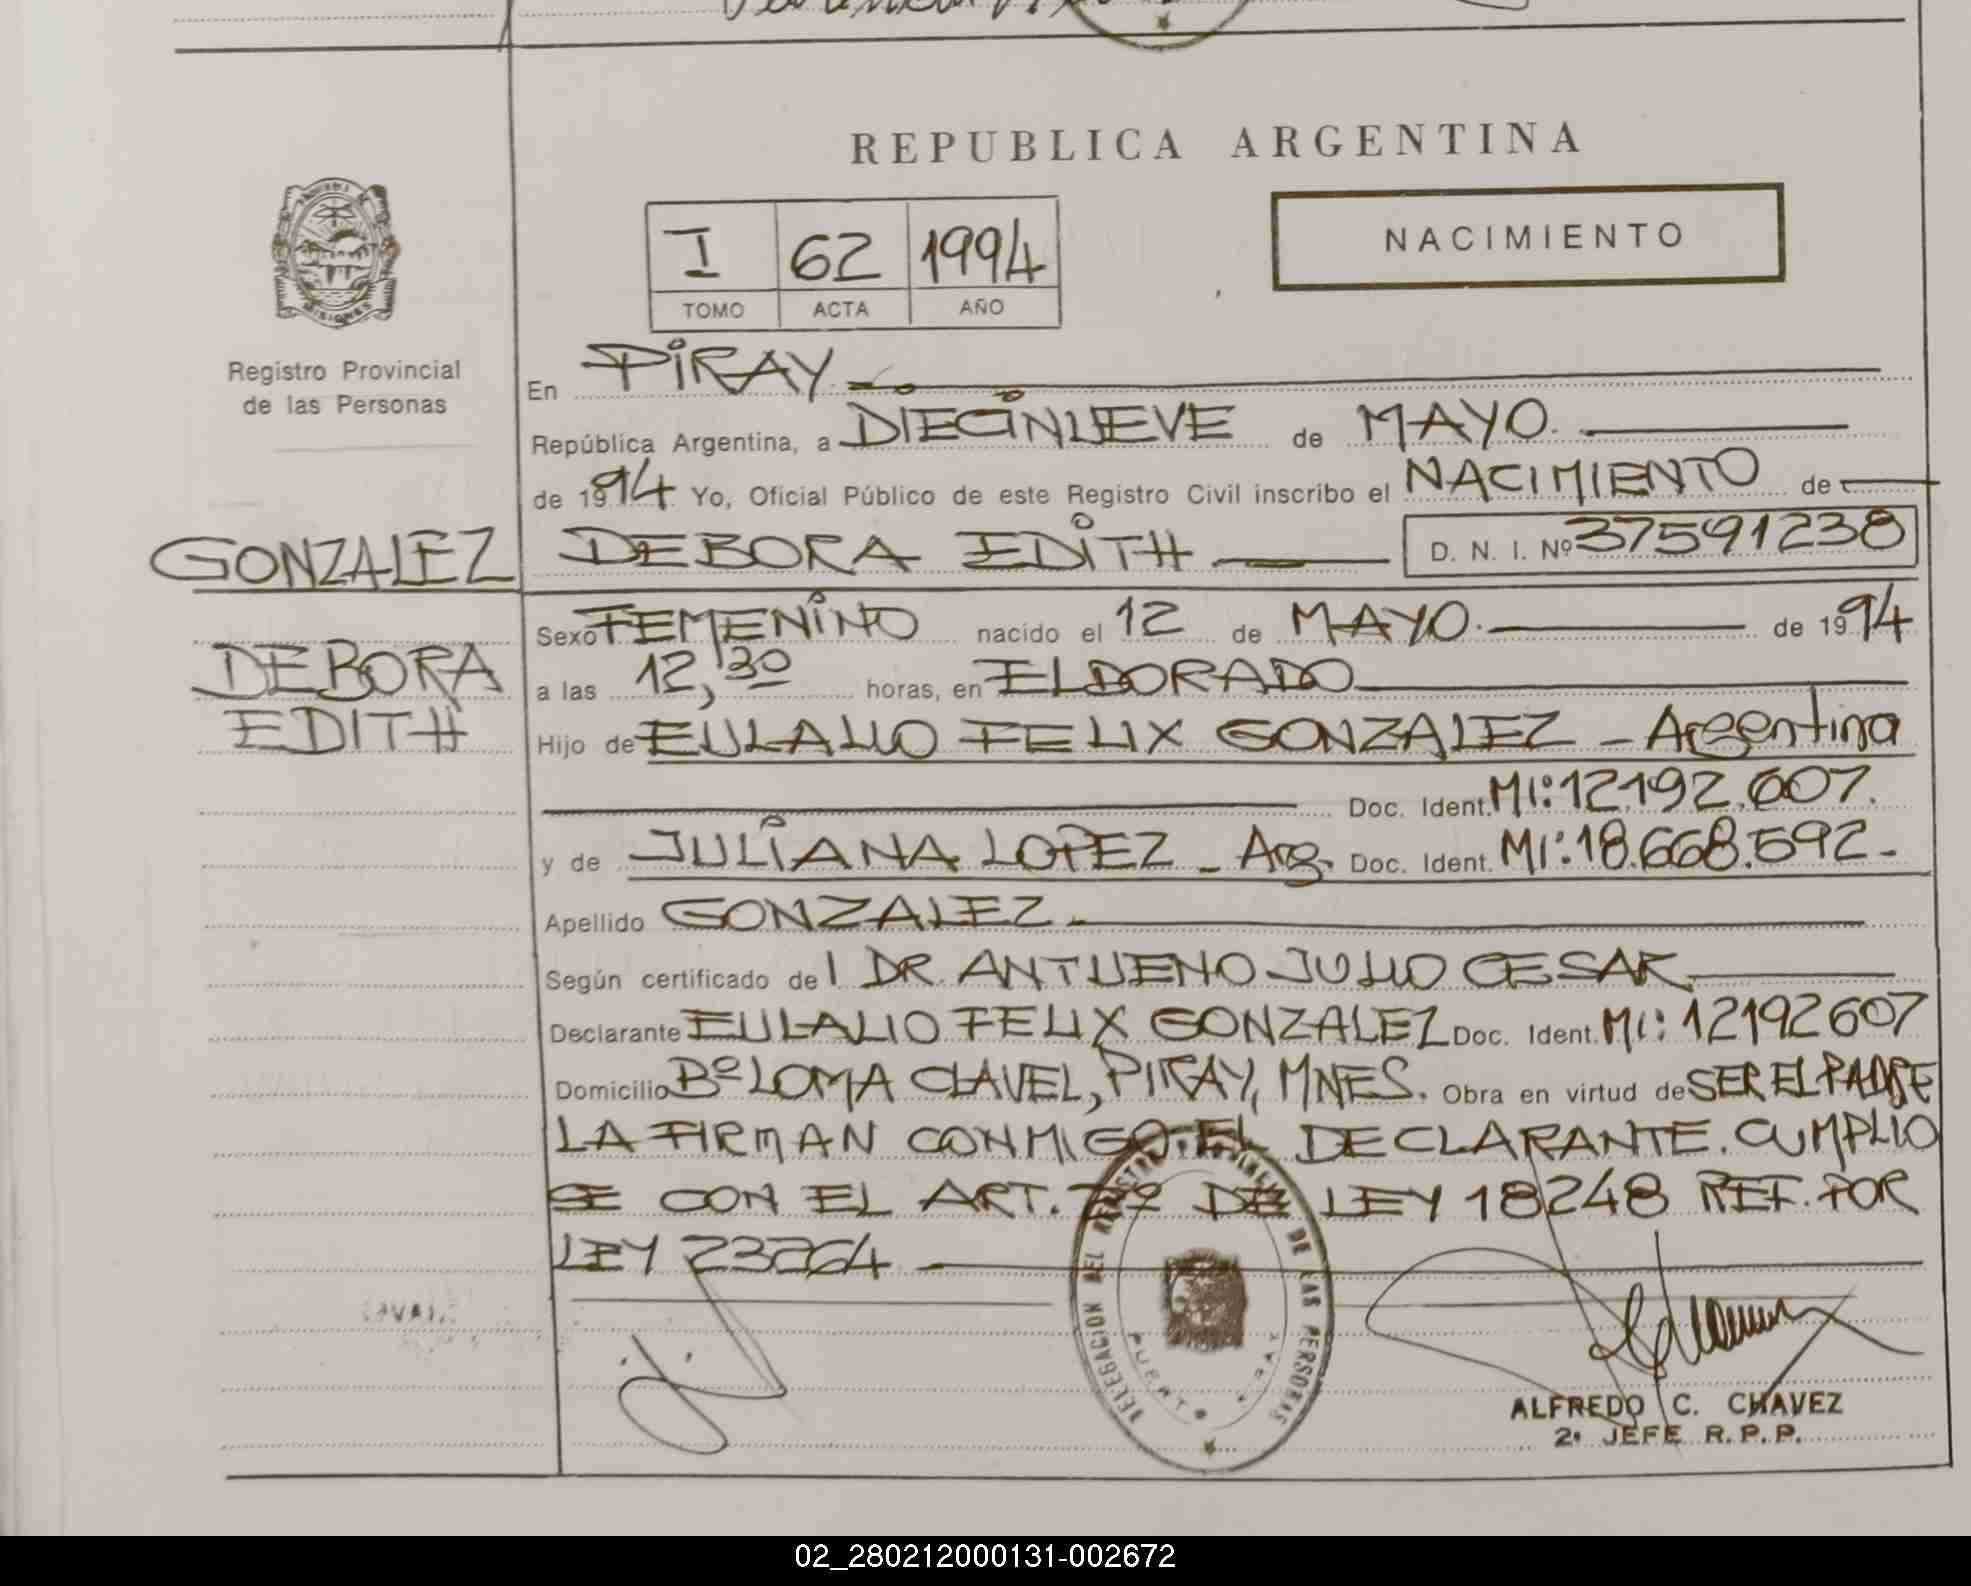 REPUBLICA ARGENTINA
I 62 1994
TOMO ACTA AÑO
NACIMIENTO
MISIONES
Registro Provincial
de las Personas
GONZALEZ
DEBORA
EDITH
En PIRAY
República Argentina, a DIECINUEVE de MAYO.
de 1994 Yo, Oficial Público de este Registro Civil inscribo el NACIMIENTO de
DEBORA EDITH D. N. I. Nº 37591238
Sexo FEMENINO nacido el 12 de MAYO. de 1994
a las 12,30 horas, en ELDORADO
Hijo de EULALIO FELIX GONZALEZ - Argentina
Doc. Ident. MI: 12.192.607.
y de JULIANA LOPEZ - Arg. Doc. Ident. MI: 18.668.592-
Apellido GONZALEZ-
Según certificado del DR. ANTUENO JULIO CESAR
Declarante EULALIO FELIX GONZALEZ Doc. Ident. MI: 12192607
Domicilio Bº LOMA CLAVEL, PIRAY, MNES. Obra en virtud de SER EL PADRE
LA FIRMAN CONMIGO: EL DECLARANTE. CUMPLIO
SE CON EL ART. DE LEY 18248 REF. POR
LEY 23264
DELEGACION DEL REGISTRO PROVINCIAL DE LAS PERSONAS
PUERTO PIRAY
ALFREDO C. CHAVEZ
2º JEFE R. P. P.
02_280212000131-002672